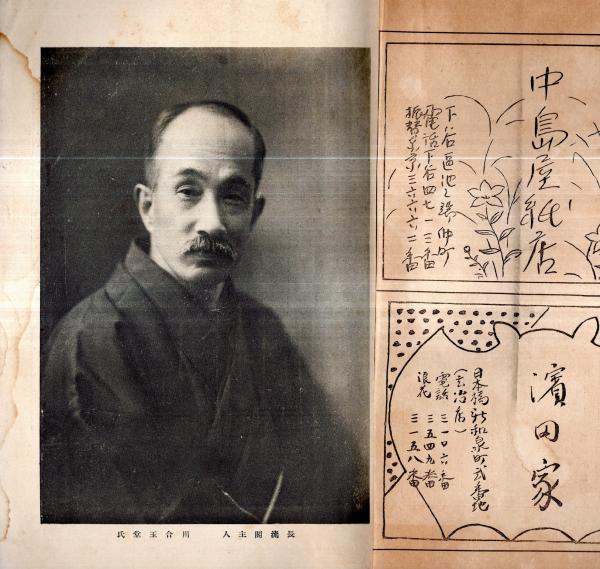 中島屋紙店
下谷區池之端仲町
電話下谷四七一三番
振替東京三六六六二番
濱田家
日本橋新和泉町弐番地
(玄冶店)
電話 三一〇六番
三五四九番
浪花 三一五八番
長流閣主人 川合玉堂氏